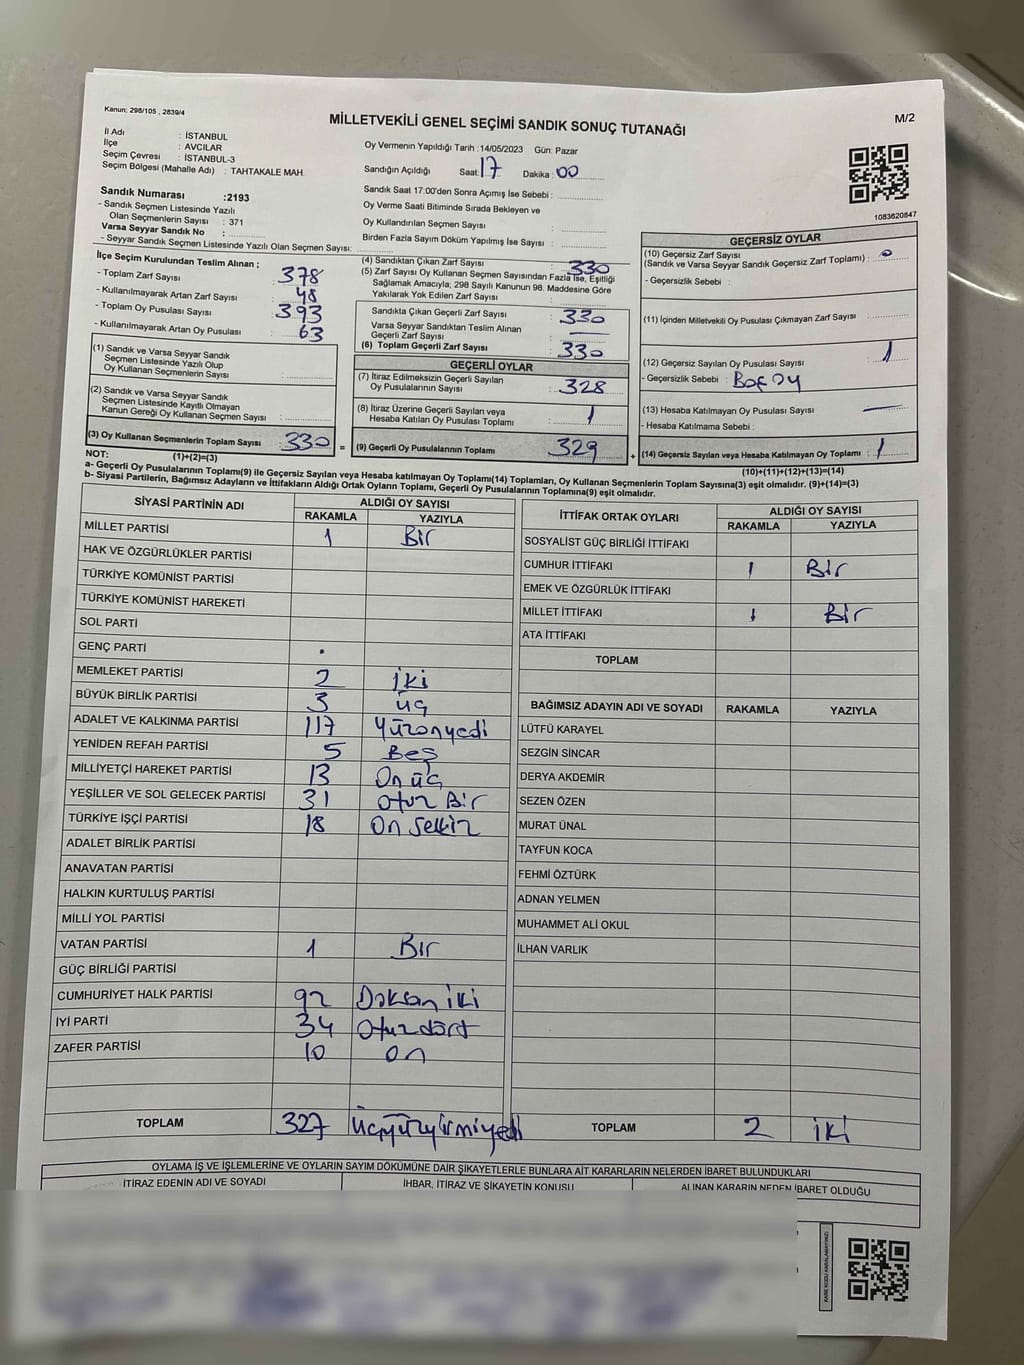 Kanun; 298/105 , 2839/4
MİLLETVEKİLİ GENEL SEÇİMİ SANDIK SONUÇ TUTANAĞI
M/2
İl Adı : İSTANBUL
İlçe : AVCILAR
Seçim Çevresi : İSTANBUL-3
Seçim Bölgesi (Mahalle Adı) : TAHTAKALE MAH.
Sandık Numarası :2193
- Sandık Seçmen Listesinde Yazılı
Olan Seçmenlerin Sayısı : 371
Varsa Seyyar Sandık No :
- Seyyar Sandık Seçmen Listesinde Yazılı Olan Seçmen Sayısı:
Oy Vermenin Yapıldığı Tarih :14/05/2023 Gün: Pazar
Sandığın Açıldığı Saat: 17 Dakika : 00
Sandık Saat 17:00'den Sonra Açımış İse Sebebi :
Oy Verme Saati Bitiminde Sırada Bekleyen ve
Oy Kullandırılan Seçmen Sayısı :
Birden Fazla Sayım Döküm Yapılmış İse Sayısı :
1083620847
İlçe Seçim Kurulundan Teslim Alınan ;
- Toplam Zarf Sayısı : 378
- Kullanılmayarak Artan Zarf Sayısı : 48
- Toplam Oy Pusulası Sayısı : 393
- Kullanılmayarak Artan Oy Pusulası : 63
(1) Sandık ve Varsa Seyyar Sandık
Seçmen Listesinde Yazılı Olup
Oy Kullanan Seçmenlerin Sayısı :
(2) Sandık ve Varsa Seyyar Sandık
Seçmen Listesinde Kayıtlı Olmayan
Kanun Gereği Oy Kullanan Seçmen Sayısı :
(3) Oy Kullanan Seçmenlerin Toplam Sayısı : 330 =
(1)+(2)=(3)
(4) Sandıktan Çıkan Zarf Sayısı : 330
(5) Zarf Sayısı Oy Kullanan Seçmen Sayısından Fazla İse, Eşitliği
Sağlamak Amacıyla, 298 Sayılı Kanunun 98. Maddesine Göre
Yakılarak Yok Edilen Zarf Sayısı :
Sandıkta Çıkan Geçerli Zarf Sayısı : 330
Varsa Seyyar Sandıktan Teslim Alınan
Geçerli Zarf Sayısı :
(6) Toplam Geçerli Zarf Sayısı : 330
GEÇERLİ OYLAR
(7) İtiraz Edilmeksizin Geçerli Sayılan
Oy Pusulalarının Sayısı : 328
(8) İtiraz Üzerine Geçerli Sayılan veya
Hesaba Katılan Oy Pusulası Toplamı : 1
(9) Geçerli Oy Pusulalarının Toplamı : 329 +
GEÇERSİZ OYLAR
(10) Geçersiz Zarf Sayısı
(Sandık ve Varsa Seyyar Sandık Geçersiz Zarf Toplamı) : 0
- Geçersizlik Sebebi :
(11) İçinden Milletvekili Oy Pusulası Çıkmayan Zarf Sayısı :
(12) Geçersiz Sayılan Oy Pusulası Sayısı : 1
- Geçersizlik Sebebi : Boş oy
(13) Hesaba Katılmayan Oy Pusulası Sayısı :
- Hesaba Katılmama Sebebi :
(14) Geçersiz Sayılan veya Hesaba Katılmayan Oy Toplamı : 1
(10)+(11)+(12)+(13)=(14)
NOT:
a- Geçerli Oy Pusulalarının Toplamı(9) ile Geçersiz Sayılan veya Hesaba katılmayan Oy Toplamı(14) Toplamları, Oy Kullanan Seçmenlerin Toplam Sayısına(3) eşit olmalıdır. (9)+(14)=(3)
b- Siyasi Partilerin, Bağımsız Adayların ve İttifakların Aldığı Ortak Oyların Toplamı, Geçerli Oy Pusulalarının Toplamına(9) eşit olmalıdır.
SİYASİ PARTİNİN ADI ALDIĞI OY SAYISI
RAKAMLA YAZIYLA
MİLLET PARTİSİ 1 Bir
HAK VE ÖZGÜRLÜKLER PARTİSİ
TÜRKİYE KOMÜNİST PARTİSİ
TÜRKİYE KOMÜNİST HAREKETİ
SOL PARTİ
GENÇ PARTİ
MEMLEKET PARTİSİ 2 iki
BÜYÜK BİRLİK PARTİSİ 3 üç
ADALET VE KALKINMA PARTİSİ 117 Yüzonyedi
YENİDEN REFAH PARTİSİ 5 Beş
MİLLİYETÇİ HAREKET PARTİSİ 13 On üç
YEŞİLLER VE SOL GELECEK PARTİSİ 31 otuz Bir
TÜRKİYE İŞÇİ PARTİSİ 18 On sekiz
ADALET BİRLİK PARTİSİ
ANAVATAN PARTİSİ
HALKIN KURTULUŞ PARTİSİ
MİLLİ YOL PARTİSİ
VATAN PARTİSİ 1 Bır
GÜÇ BİRLİĞİ PARTİSİ
CUMHURİYET HALK PARTİSİ 92 Doksan iki
İYİ PARTİ 34 otuzdört
ZAFER PARTİSİ 10 on
TOPLAM 327 Üçyüzyirmiyedi
İTTİFAK ORTAK OYLARI ALDIĞI OY SAYISI
RAKAMLA YAZIYLA
SOSYALİST GÜÇ BİRLİĞİ İTTİFAKI
CUMHUR İTTİFAKI 1 Bir
EMEK VE ÖZGÜRLÜK İTTİFAKI
MİLLET İTTİFAKI 1 Bir
ATA İTTİFAKI
TOPLAM
BAĞIMSIZ ADAYIN ADI VE SOYADI RAKAMLA YAZIYLA
LÜTFÜ KARAYEL
SEZGİN SİNCAR
DERYA AKDEMİR
SEZEN ÖZEN
MURAT ÜNAL
TAYFUN KOCA
FEHMİ ÖZTÜRK
ADNAN YELMEN
MUHAMMET ALİ OKUL
İLHAN VARLIK
TOPLAM 2 iki
OYLAMA İŞ VE İŞLEMLERİNE VE OYLARIN SAYIM DÖKÜMÜNE DAİR ŞİKAYETLERLE BUNLARA AİT KARARLARIN NELERDEN İBARET BULUNDUKLARI
İTİRAZ EDENİN ADI VE SOYADI İHBAR, İTİRAZ VE ŞİKAYETİN KONUSU ALINAN KARARIN NEDEN İBARET OLDUĞU
KARE KODU KARALAMAYINIZ!